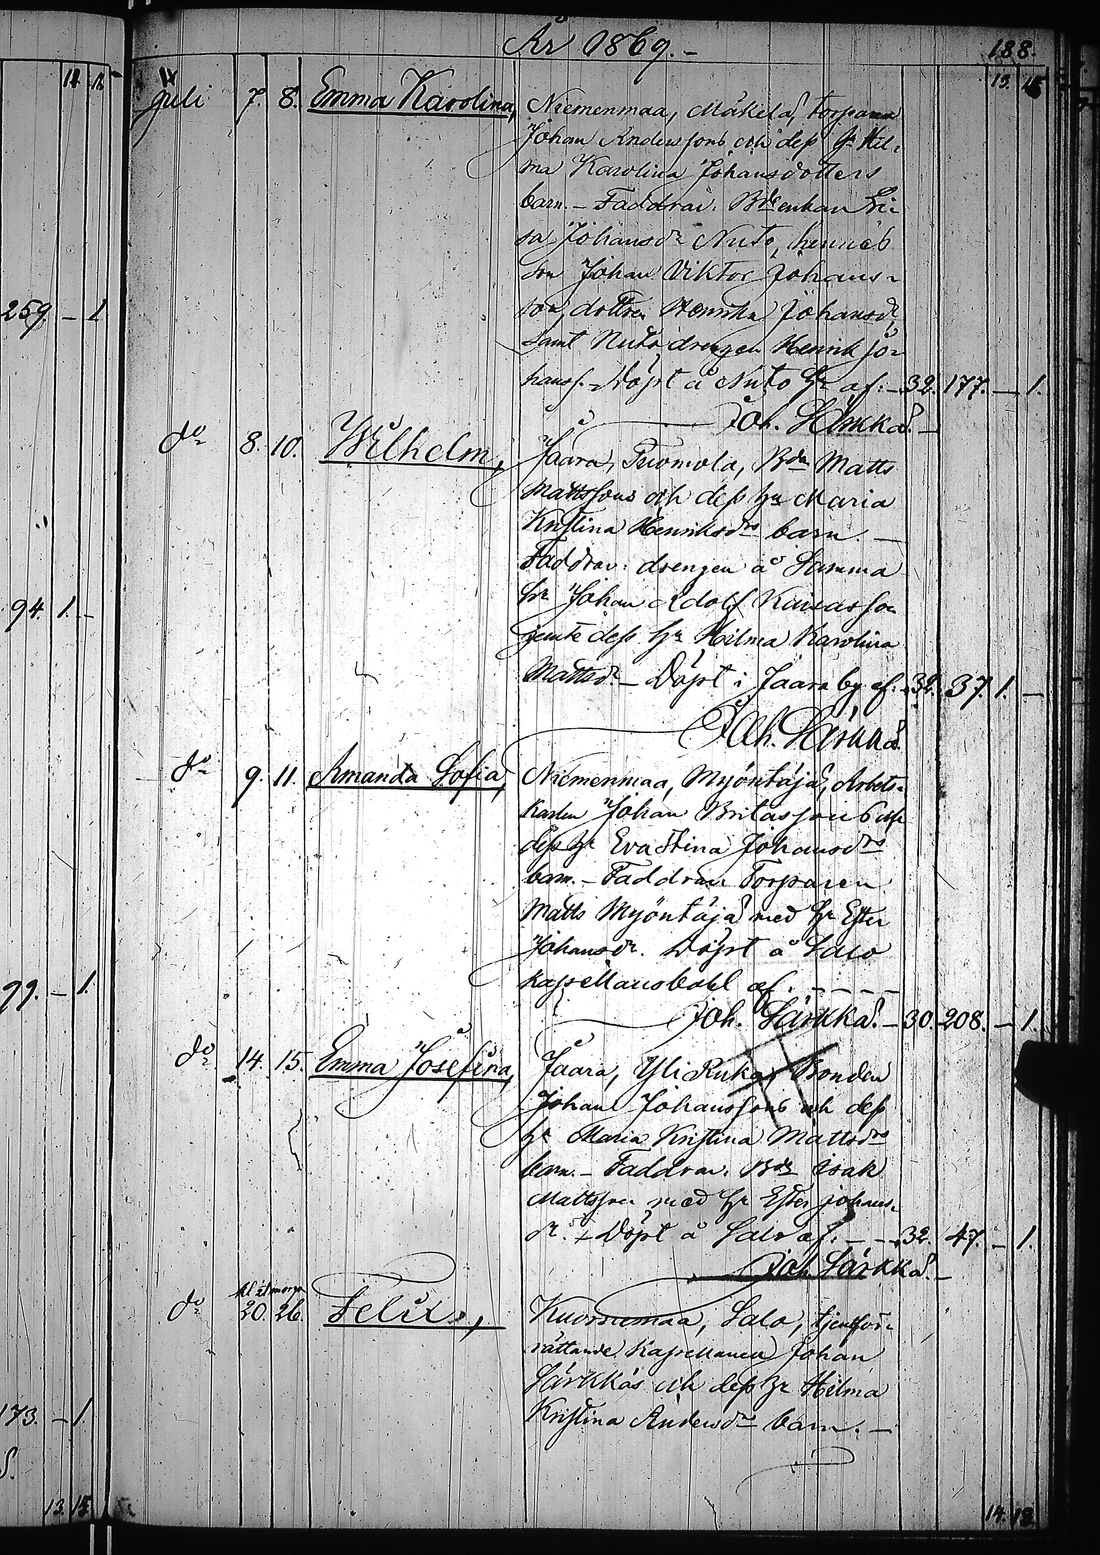 År 1869.—
188.
12. 12.
13. 15
Juli 7. 8. Emma Karolina, Niemenmaa, Mäkelä, torparen
Johan Anderssons och dess h. Hil-
ma Karolina Johansdotters
barn. — Faddrar: Bdeenkan Li-
sa Johansdr Nuto, hennes
son Johan Viktor Johans-
259. — 1.
son, dottren Henrika Johansdr
samt Nuto drengen Henrik Jo-
hanss. — Döpt å Nuto hr af. — 32. 177. — 1.
Joh. Särkkä. —
do 8. 10. Wilhelm, Jaara, Tuomola, Bdn Matts
Mattssons och dess hu Maria
Kristina Henriksdrs barn. —
Faddrar: drengen å samma
94. 1. —
hr Johan Adolf
jemte dess hr Hilma Karolina
Mattsdr. — Döpt i Jaara by af. 32. 37. 1. —
Joh. Särkkä.
do 9. 11. Amanda Sofia, Niemenmaa, Myöntäjä, Arbets-
karlen Johan och
dess hr Eva Stina Johansdrs
barn. — Faddrar: Torparen
Matts Myöntäjä med hr Ester
Johansdr. Döpt å Salo
99. — 1.
kapellansbohl af. — — — —
Joh. Särkkä. — 30. 208. — 1.
do 14. 15. Emma Josefina, Jaara, Yli Ruka, Bonden
Johan Johanssons och dess
hr Maria Kristina Mattsdrs
barn. — Faddrar: Bdn Isak
Mattsson med hr Ester Johans-
dr. — Döpt å Salo af. — — 32. 47. — 1.
Joh. Särkkä. —
do 20. 26. Felix, Kuorsumaa, Salo, tjenstför-
rättande Kapellanen Johan
Särkkäs och dess hr Hilma
173. — 1.
Kristina Andersdrs barn. —
13. 15.
14. 18.